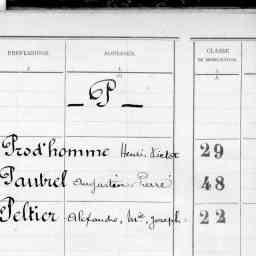 PROFESSIONS. ADRESSES. CLASSE DE MOBILISATION.
P
Prod'homme Henri Victor 29
Pautrel Augustin Pierre 48
Peltier Alexandre, Mie Joseph 22